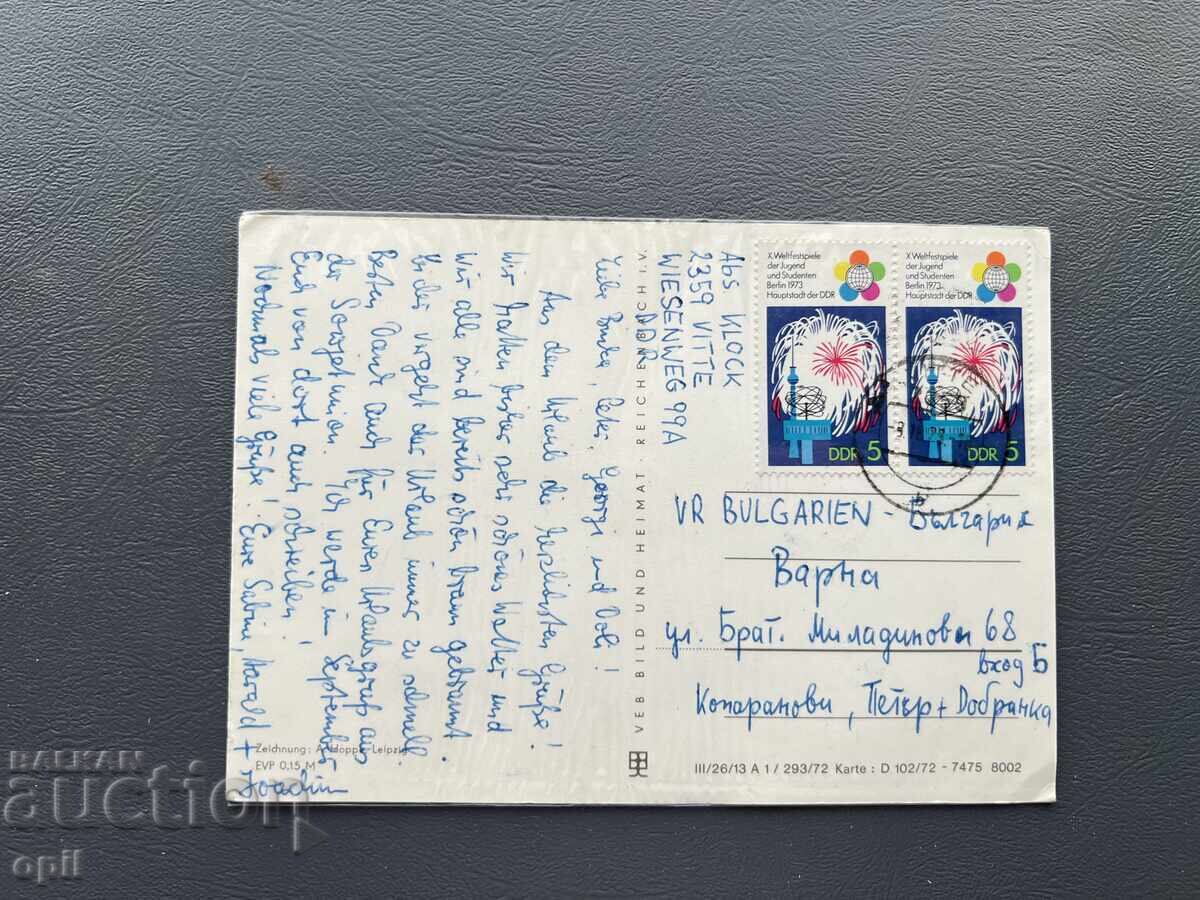 Abs KLOCK
2359 VITTE
WIESENWEG 99A
DDR
Liebe Peter, Georgi und Dobi!
Aus dem Urlaub die herzlichsten Grüße!
Wir hatten bisher sehr schönes Wetter und
wir alle sind bereits schön braun gebrannt
leider vergeht der Urlaub immer zu schnell.
Besten Dank auch für Euren Urlaubsgruß aus
der Sowjetunion. Ich werde im September
Euch von dort aus schreiben!
Nochmals viele Grüße! Eure Sabine, Harald + Joachim
Zeichnung: A. Hoppe, Leipzig
EVP 0,15 M
VEB BILD UND HEIMAT · REICHENBACH I. V.
X. Weltfestspiele
der Jugend
und Studenten
Berlin 1973
Hauptstadt der DDR
DDR 5
X. Weltfestspiele
der Jugend
und Studenten
Berlin 1973
Hauptstadt der DDR
DDR 5
VR BULGARIEN - България
Варна
ул. Брат. Миладинови 68
вход Б
Копаранови, Петър + Добринка
III/26/13 A 1 / 293/72 Karte : D 102/72 - 7475 8002
BALKAN
auction
opil